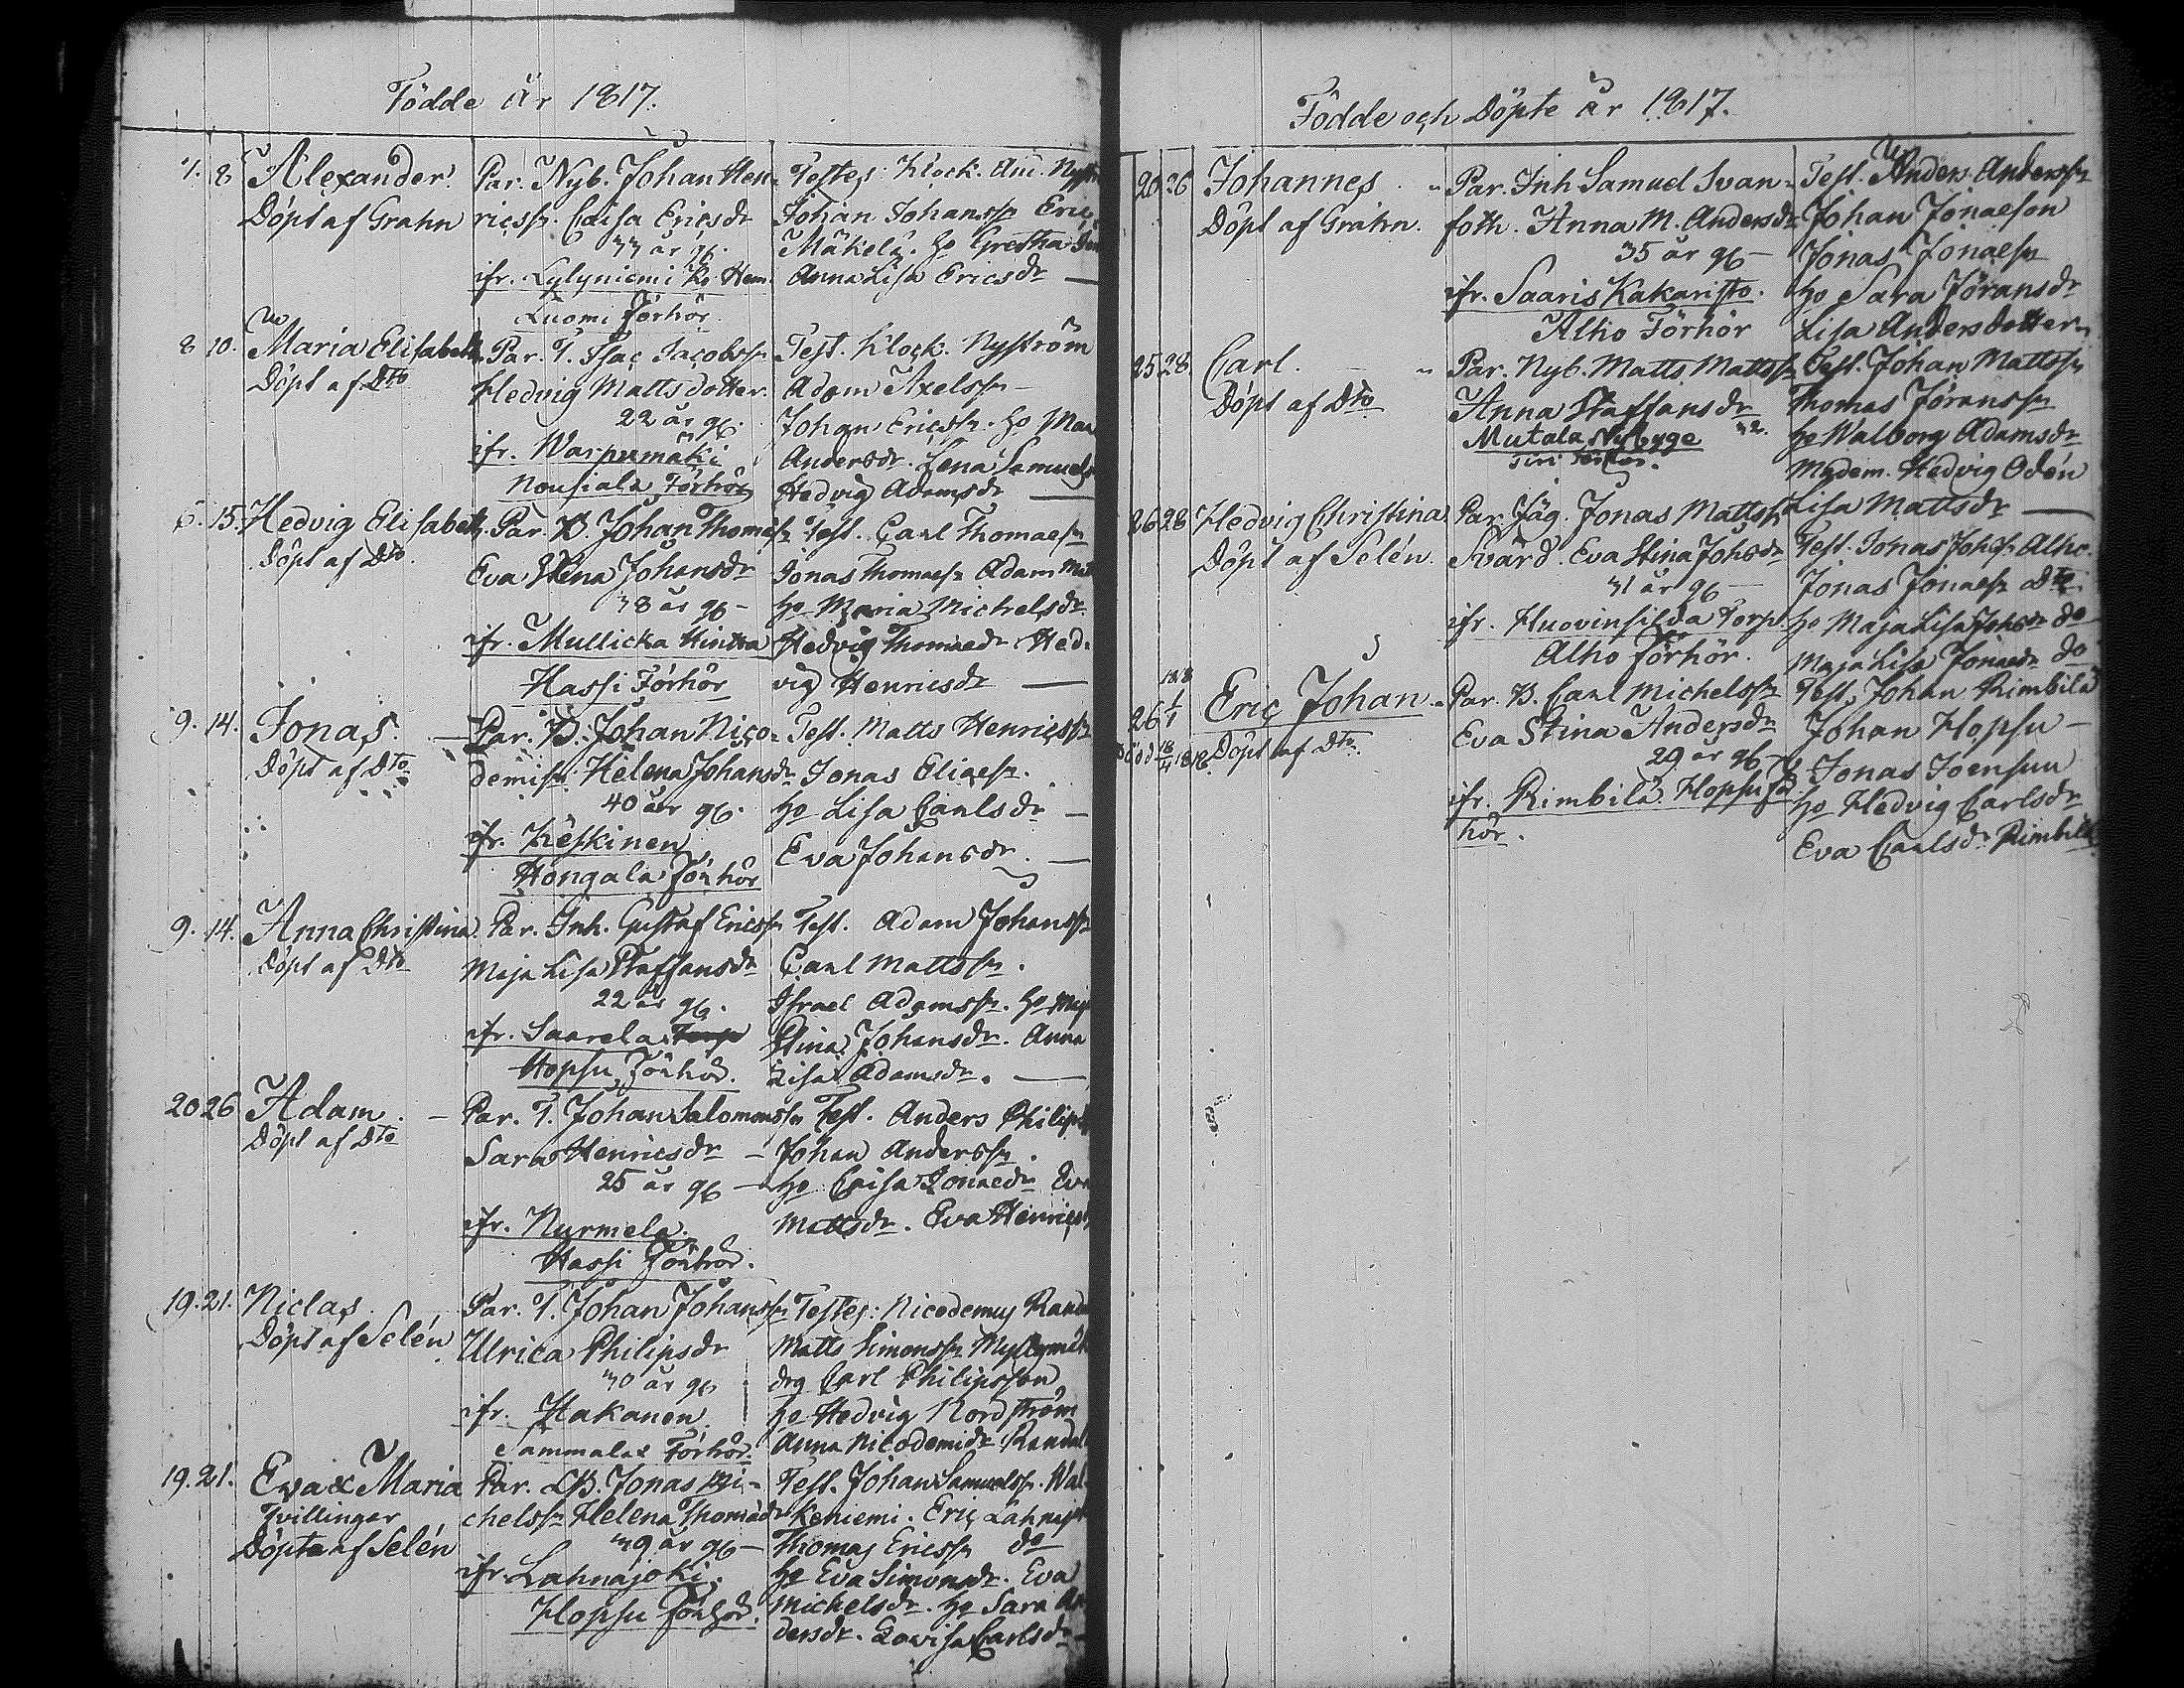 Födde år 1817.
7. 8 Alexander.
Döpt af Grahn
Par. Nyb. Johan Hen-
ricss. Caisa Ericsdr
33 år g.
ifr. Lylyniemi
Luomi Förhör.
Testes: Klock. And. Nystr
Johan Johanss Eric
Mäkelä. ho Gretha
Anna Lisa Ericsdr —
8 10. Maria Elisabeth
Döpt af Dto
Par. T. Isac Jacobss
Hedvig Mattsdotter.
22 år g.
ifr. Warpumäki
Nousiala Förhör
Test. Klock. Nyström
Adam Axelss —
Johan Ericss. ho Mar
Andersdr. Lena Samuels
Hedvig Adamsdr —
6. 15. Hedvig Elisabeth
Döpt af Dto
Par. B. Johan Thomæss
Eva Stina Johansdr
38 år g —
ifr. Mullicka Hinkka
Hassi Förhör
Test. Carl Thomaess
Jonas Thomaess Adam
ho Maria Michelsdr
Hedvig Thomædr Hed-
vig Henricsdr —
9. 14. Jonas. —
Döpt af Dto
Par. B. Johan Nico-
demiss. Helena Johansdr
40 år g.
ifr. Keskinen
Hongala Förhör
Test. Matts Henricss
Jonas Eliaess.
ho Lisa Carlsdr —
Eva Johansdr. —
9. 14. Anna Christina
Döpt af Dto
Par. Inh. Gustaf Ericss
Maja Lisa Staffansdr
22 år g.
ifr. Saarela
Hopsu Förhör.
Test. Adam Johanss
Carl Mattss.
Israel Adamss. ho Maj
Stina Johansdr. Anna
Lisa Adamsdr. —
20 26 Adam. —
Döpt af Dto
Par. T. Johan Salomonss
Sara Henricsdr —
25 år g —
ifr. Nurmela.
Hassi Förhör.
Test. Anders Philips
Johan Anderss.
ho Caisa Jonaedr Eva
Mattsdr. Eva Henrics
19. 21. Niclas
Döpt af Selén
Par. T. Johan Johanss
Ulrica Philipsdr
30 år g
ifr. Hakanen
Sammalax Förhör.
Testes: Nicodemus Randa
Matts Simonss Myllymäk
drg Carl Philipsson
ho Hedvig Nordström
Anna Nicodemidr Randal
19. 21. Eva & Maria
Tvillingar
Döpte af Selén
Par. B. Jonas Mi-
chelss Helena Thomædr
39 år g —
ifr. Lahnajoki.
Hopsu Förhör.
Test. Johan Samuelss. Wal-
keniemi. Eric Lahnajo
Thomas Ericss do
ho Eva Simonsdr. Eva
Michelsdr. ho Sara An
dersdr. Lovisa Carlsdr —
Födde och Döpte år 1817.
20 26 Johannes.
Döpt af Grahn.
Par. Inh Samuel Svan-
foth. Anna M. Andersdr
35 år g —
ifr. Saaris Kakaristo.
Alho Förhör
Test. Anders Anderss
Johan Jonaeson
Jonas Jonaess
ho Sara Jöransdr
Lisa Andersdotter
25 28. Carl.
Döpt af Dto
Par. Nyb. Matts Mattss
Anna Staffansdr
32.
Mutala Nybyge
Test. Johan Mattss
Thomas Jöranss
ho Walborg Adamsdr
Mydem. Hedvig Odén
Lisa Mattsdr —
26 28 Hedvig Christina
Döpt af Selén.
Par. Jäg. Jonas Mattss
Svärd. Eva Stina Johsdr
31 år g —
ifr. Huovinsilda Torp.
Alho Förhör.
Test. Jonas Johss Alho.
Jonas Jonaess Dto
ho Maja Lisa Johsdr do
Maja Lisa Jonaedr do
1818
26 1/1 Eric Johan
Död 18/4 1818. Döpt af Dto.
Par. B. Carl Michelss
Eva Stina Andersdr
29 år g —
ifr. Rimbilä. Hopsu för
hör.
Test. Johan Rimbilä
Johan Hopsu —
Jonas Joensuu
ho Hedvig Carlsdr
Eva Carlsdr Rimbilä